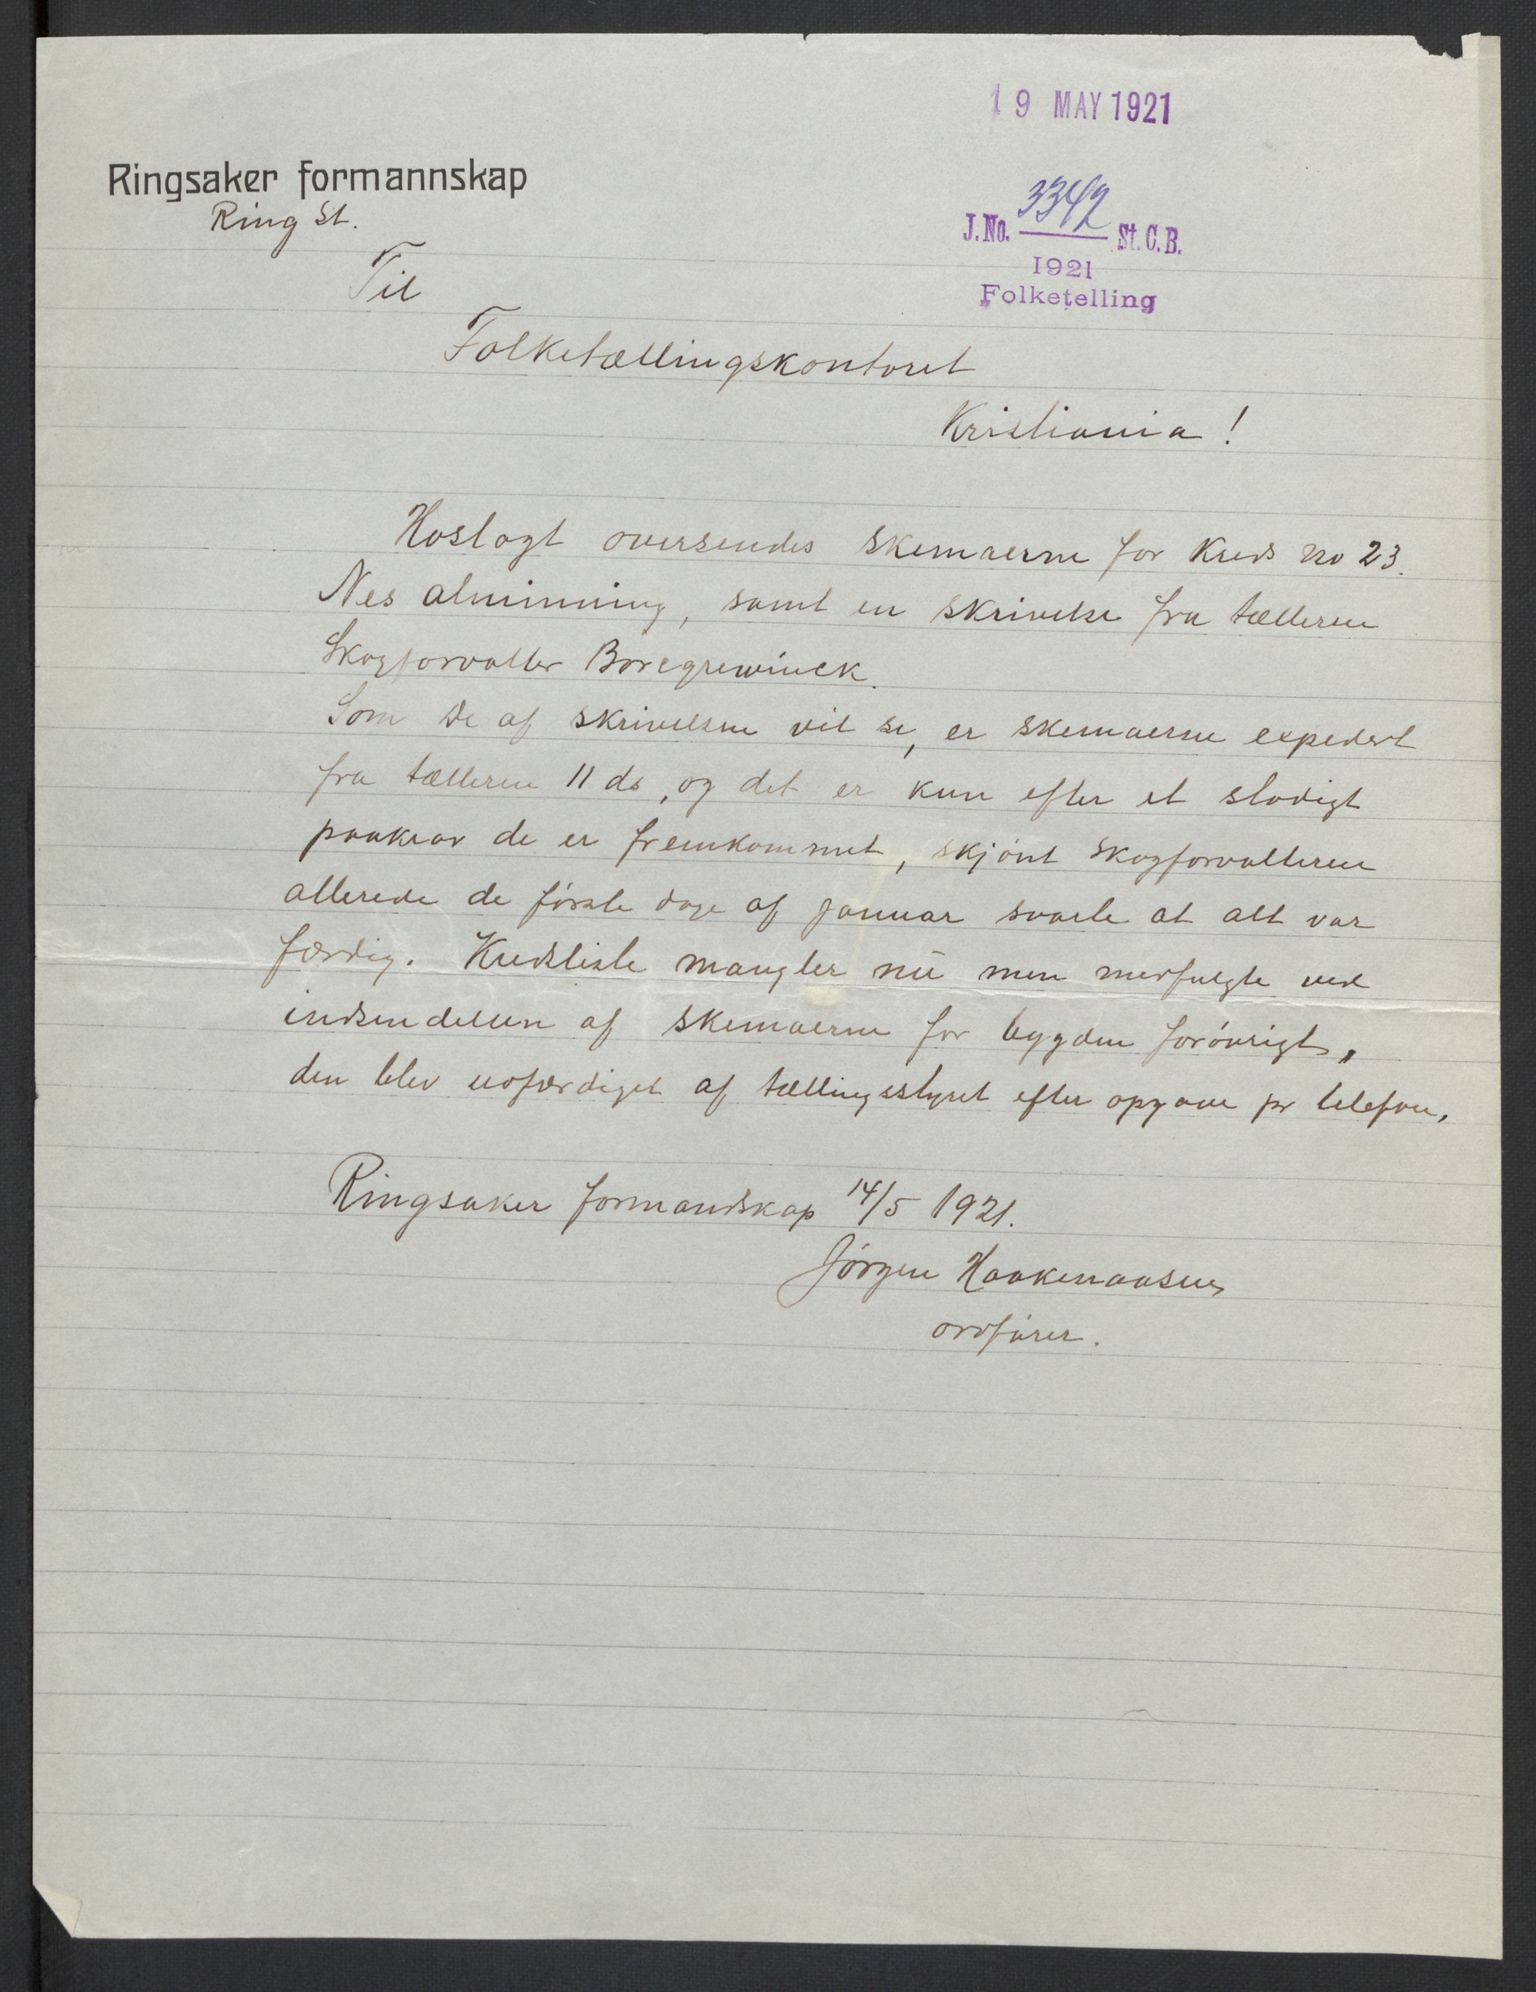 19 MAY 1921
Ringsaker formannskap
Ring St.
J.No. 3342 St.C.B.
1921
Folketelling
Til
Folketællingskontoret
Kristiania!
Hoslagt oversendes skemaerne for Kreds no 23.
Nes alminning, samt en skrivelse fra tælleren
Skogforvalter Borcgrewinck.
Som De af skrivelsen vil se, er skemaerne expedert
fra tælleren 11 ds, og det er kun efter et stadigt
paakrav de er fremkommet, skjönt skogforvalteren
allerede de förste dage af januar svarte at alt var
færdig. Kredsliste mangler nu men medfulgte ved
indsendelsen af skemaerne for bygden forövrigt,
den blev utfærdiget af tællingsstyret efter opgave pr telefon.
Ringsaker formandskap 14/5 1921.
Jörgen Haakenaasen
ordförer.